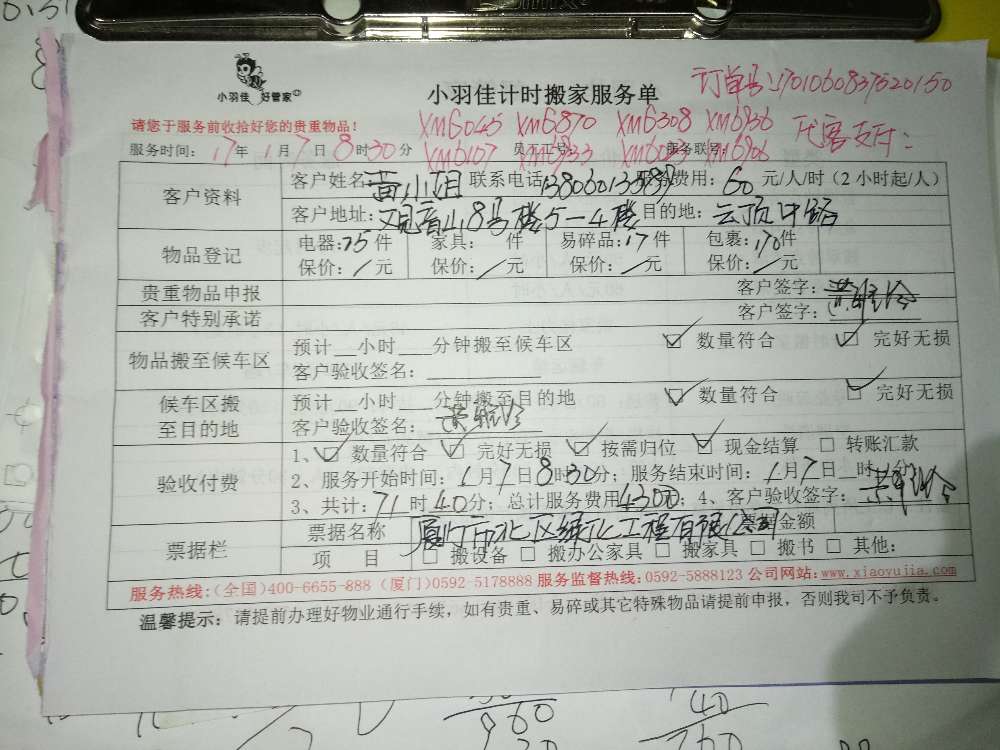 小羽佳 好管家
小羽佳计时搬家服务单
订单号:1701060837520150
请您于服务前收拾好您的贵重物品！
XM6045 XM6870 XM6308 XM6936 代客支付:
服务时间：17年1月7日8时30分 XM6107 员工工号 服务联号 XM6906
客户资料
客户姓名 黄小姐 联系电话 服务费用：60 元/人/时（2小时起/人）
客户地址：观音山8号楼5-4楼 目的地：云顶中路
物品登记
电器：75件 家具： 件 易碎品：17件 包裹：170件
保价：/元 保价：/元 保价：/元 保价：/元
贵重物品申报 客户签字：
客户特别承诺 客户签字：
物品搬至候车区
预计__小时___分钟搬至候车区 ☑ 数量符合 ☑ 完好无损
客户验收签名：
候车区搬至目的地
预计__小时___分钟搬至目的地 ☑ 数量符合 ☑ 完好无损
客户验收签名：
验收付费
1、☑ 数量符合 ☑ 完好无损 ☑ 按需归位 ☑ 现金结算 □ 转账汇款
2、服务开始时间：1月7日8时30分；服务结束时间：1月7日__时__分；
3、共计：71时40分；总计服务费用4300元；4、客户验收签字：
票据栏
票据名称 厦门市北区绿化工程有限公司 票据金额
项 目 □ 搬设备 □ 搬办公家具 □ 搬家具 □ 搬书 □ 其他：
服务热线：(全国)400-6655-888 (厦门)0592-5178888 服务监督热线：0592-5888123 公司网站：www.xiaoyujia.com
温馨提示：请提前办理好物业通行手续，如有贵重、易碎或其它特殊物品请提前申报，否则我司不予负责。
960
40
760